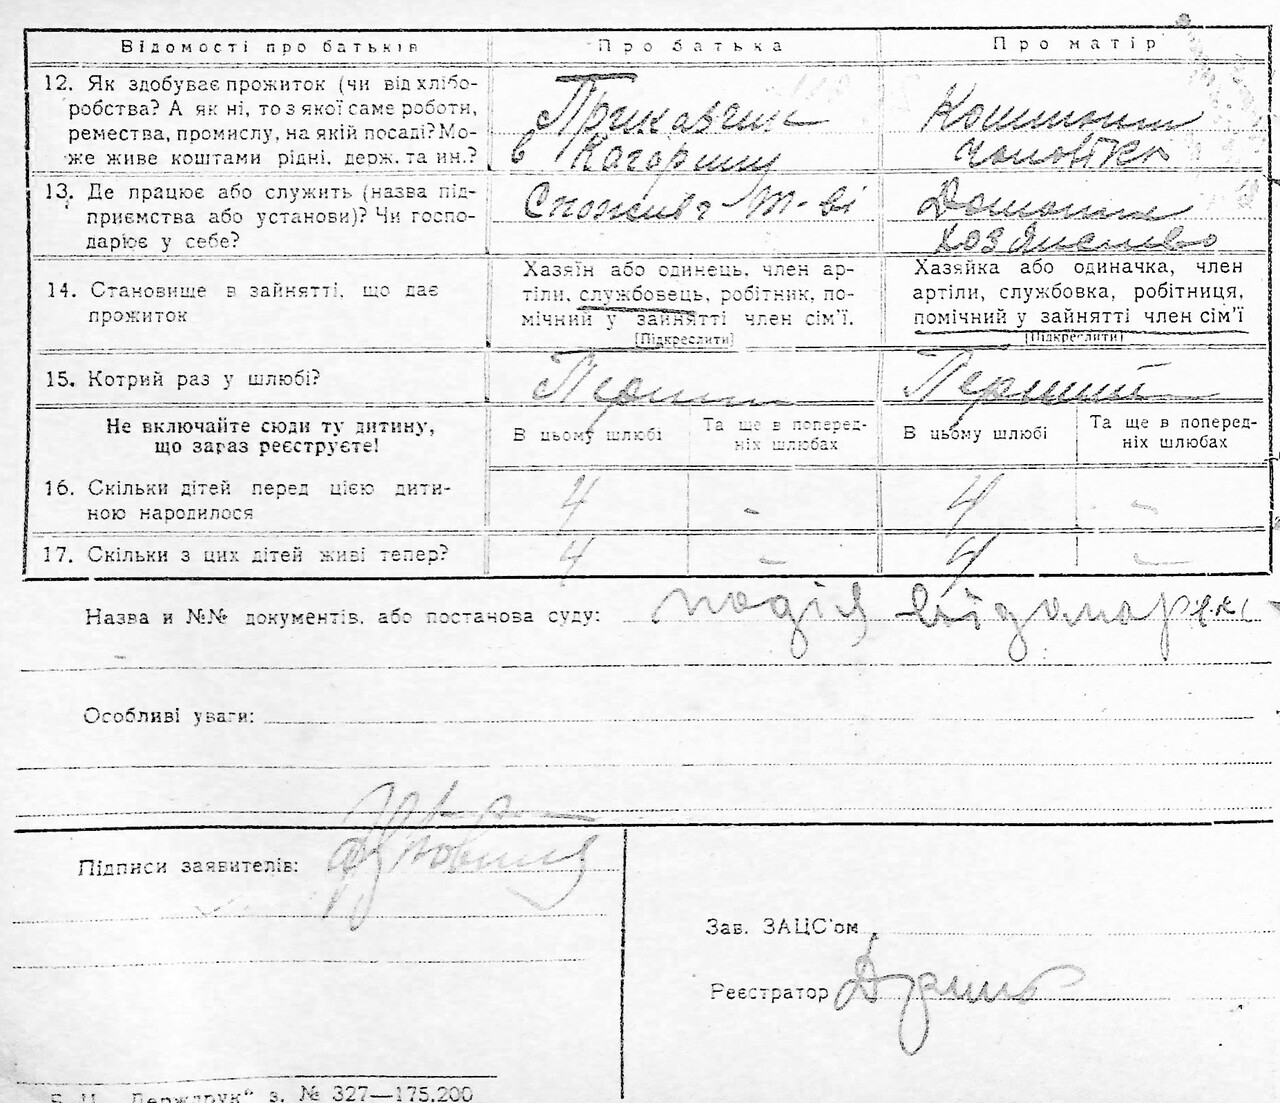 Відомості про батьків
Про батька
Про матір
12. Як здобуває прожиток (чи від хлібо-
робства? А як ні, то з якої саме роботи,
ремества, промислу, на якій посаді? Мо-
же живе коштами рідні, держ. та ин.?
Приказчик
в
Коштом
чоловіка
13. Де працює або служить (назва під-
приємства або установи)? Чи госпо-
дарює у себе?
Спожив. т-ві
Домашнє
хозяйство
14. Становище в зайнятті, що дає
прожиток
Хазяїн або одинець, член ар-
тіли, службовець, робітник, по-
мічний у зайнятті член сім'ї.
(Підкреслити)
Хазяйка або одиначка, член
артіли, службовка, робітниця,
помічний у зайнятті член сім'ї
(Підкреслити)
15. Котрий раз у шлюбі?
Перший
Перший
Не включайте сюди ту дитину,
що зараз реєструєте!
В цьому шлюбі
Та ще в поперед-
ніх шлюбах
В цьому шлюбі
Та ще в поперед-
ніх шлюбах
16. Скільки дітей перед цією дити-
ною народилося
4 - 4 -
17. Скільки з цих дітей живі тепер?
4 - 4 -
Назва и №№ документів, або постанова суду: подія
Особливі уваги:
Підписи заявителів:
Зав. ЗАЦС'ом
Реєстратор
Держдрук" з. № 327—175.200